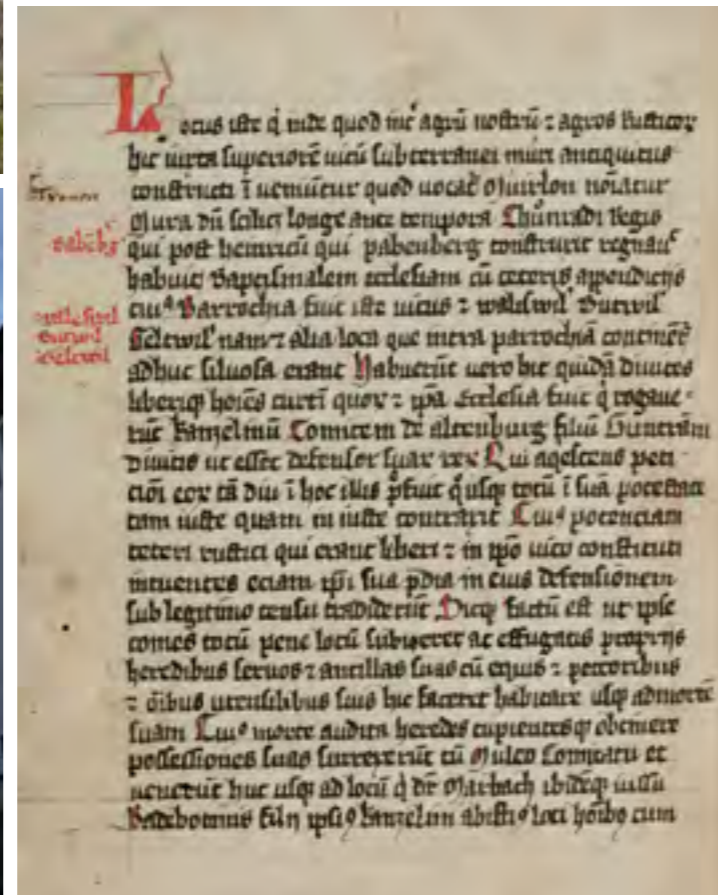 Locus iste q̄ inde quod int̄ agrū nostrū ⁊ agros rusticoꝝ
hic iuxta superiorē uicū subterranei muri antiquitus
constructi ī ueniūtur quod uocat̄ noīatur
Mura dū scilicet longe ante tempora Chūnradi Regis
qui post heinricū qui pabenberg construxit regnau͛
habuit Baptismalem ecclesiam cū ceteris appendicijs
cui⁹ Parrochia fuit iste uicus ⁊ waliswil Butwil
Geltwil nam ⁊ alia loca que intra parrochiā contineī
adhuc siluosa erant Habuerūt uero hic quidā diuites
liberiqꝫ hoīes curtī quoꝝ ⁊ ip̄a Ecclesia fuit q̄ rogaue-
rūt kanzelinū Comitem de altenburg filiū Guntrāni
diuitis ut esset defensor suaꝝ reꝝ Qui aqiescens peti
cioī eoꝝ tā diu ī hoc illis p̄fuit q̄usqꝫ totū ī suā potestatē
tam iuste quam in iuste contraxit Cui⁹ potenciam
ceteri rustici qui erant liberi ⁊ in ip̄o uico constituti
intuentes eciam ip̄i sua p̄dia in eius defensionem
sub legitimo censu tradiderūt Sicqꝫ factū est ut ipse
comes totū pene locū subiceret ac effugatis proprijs
heredibus seruos ⁊ ancillas suas cū equis ⁊ peccoribus
⁊ ōibus utensilibus suis hic faceret habitare usqꝫ ad mortē
suam Cui⁹ morte audita heredes cupientesqꝫ obtinere
possessiones suas surrexerūt cū Multo Comitatu et
uenerūt huc usqꝫ ad locū q̄ dr̄ Marbach ibideqꝫ iussu
Radebottonis filij ipsi⁹ kanzelini abisti⁹ loci hoībꝫ cum